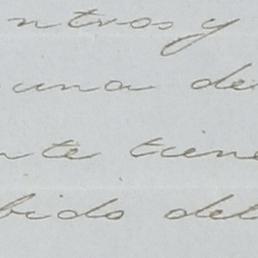 ntros y
una de
nte tiene
bido del